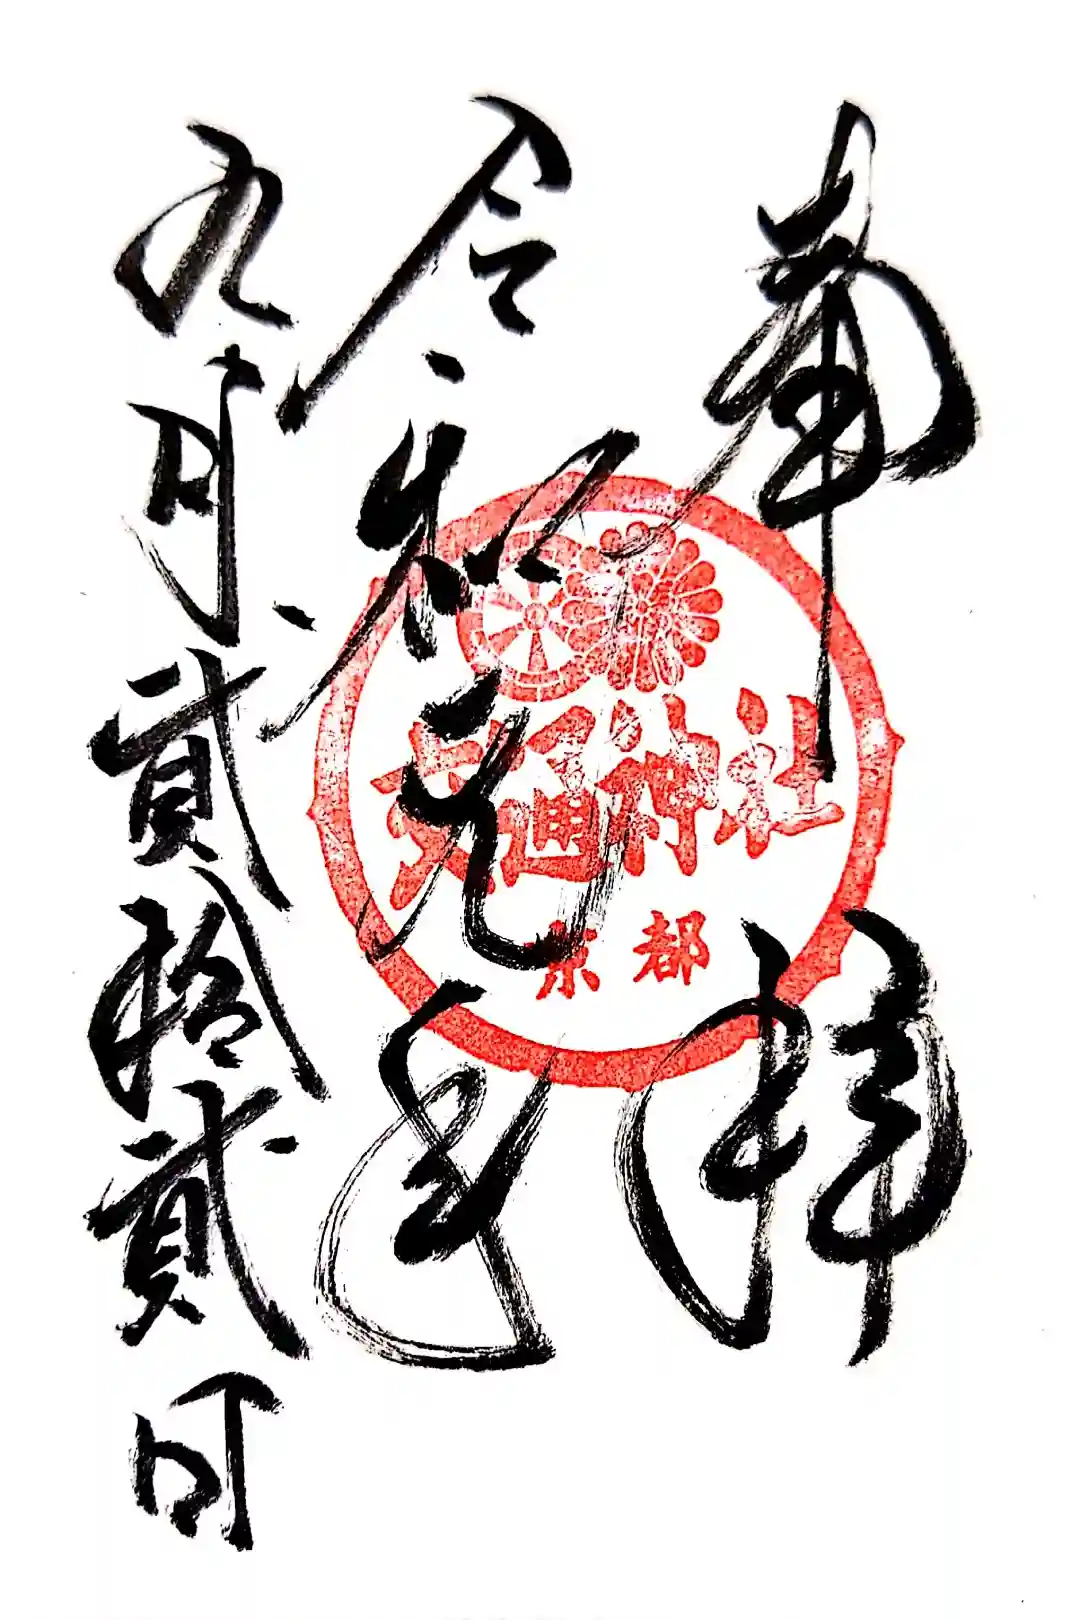 奉拝
令和元年
九月貳拾貳日
交通神社
京都